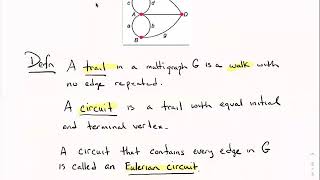 c d
A D
a b
B g
Defn A trail in a multigraph G is a walk with
no edge repeated.
A circuit is a trail with equal initial
and terminal vertex.
A circuit that contains every edge in G
is called an Eulerian circuit